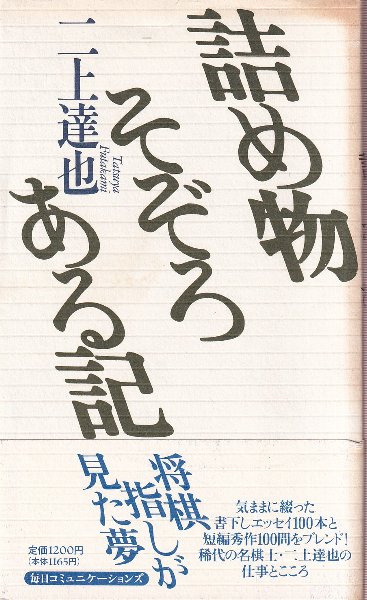 詰め物
そぞろ
ある記
二上達也
Tatsuya
Futakami
将棋
指しが
見た夢
気ままに綴った
書下しエッセイ100本と
短編秀作100問をブレンド!
稀代の名棋士・二上達也の
仕事とこころ
定価1200円
(本体1165円)
毎日コミュニケーションズ